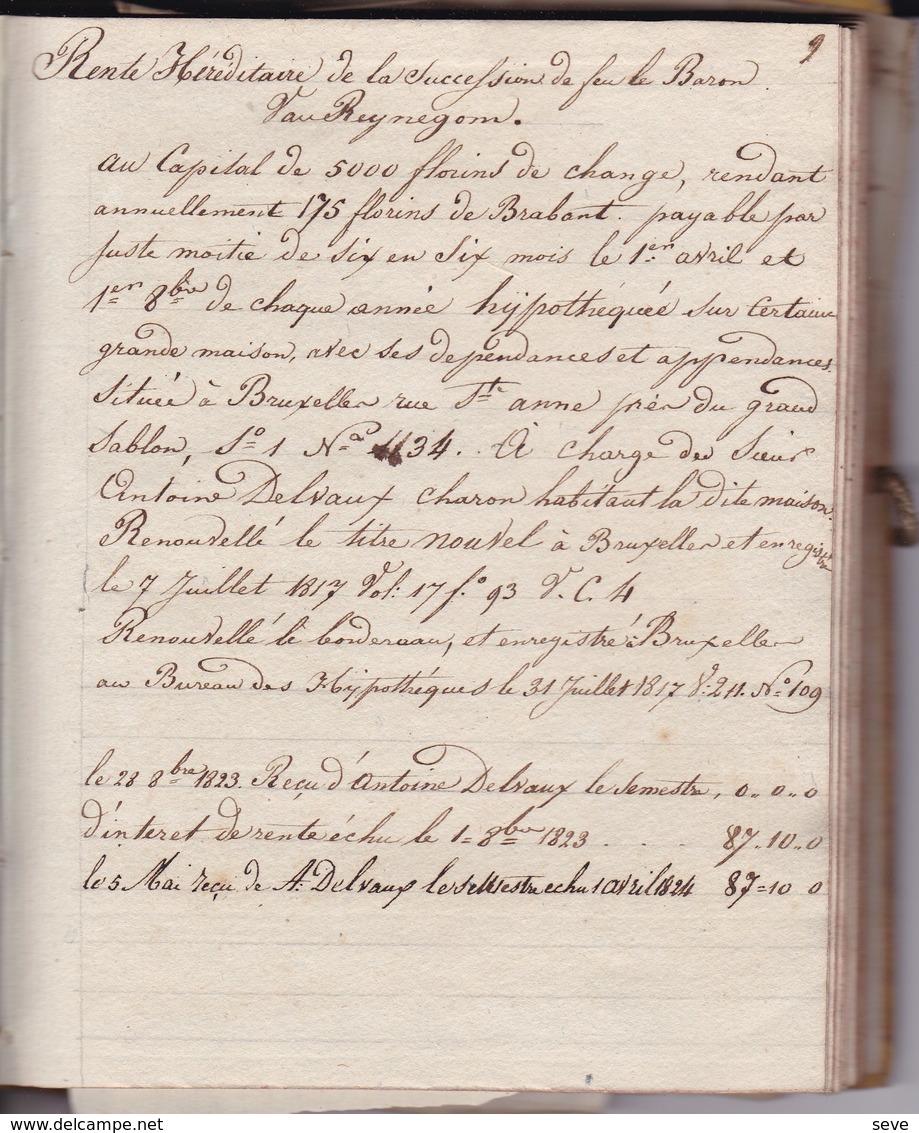 9
Rente Héréditaire de la Succession de feu le Baron
Van Reynegom.
au Capital de 5000 florins de change, rendant
annuellement 175 florins de Brabant. payable par
juste moitié de six en six mois le 1er avril et
1er 8bre de chaque année hijpothéquéé sur certaine
grande maison, avec ses dependances et appendances.
située à Bruxelles rue Ste anne près du grand
Sablon, So 1 No 1134. À charge du Sieur
Antoine Delvaux charon habitant la dite maison.
Renouvellé le titre nouvel à Bruxelles et enregistré
le 7 Juillet 1817 Vol: 17 fo 93 V. C. 4
Renouvellé le bordereau, et enregistré à Bruxelles
au Bureau des Hypothéques le 31 Juillet 1817 Vo: 211. No 109
le 28 8bre 1823. Reçu d'Antoine Delvaux le semestre, 0.. 0.. 0
d'interet de rente échu le 1= 8bre 1823 . . . . 87.. 10.. 0
le 5 Mai reçu de A. Delvaux le semestre echu 1 avril 1824 87=10 0
delcampe.net
seve